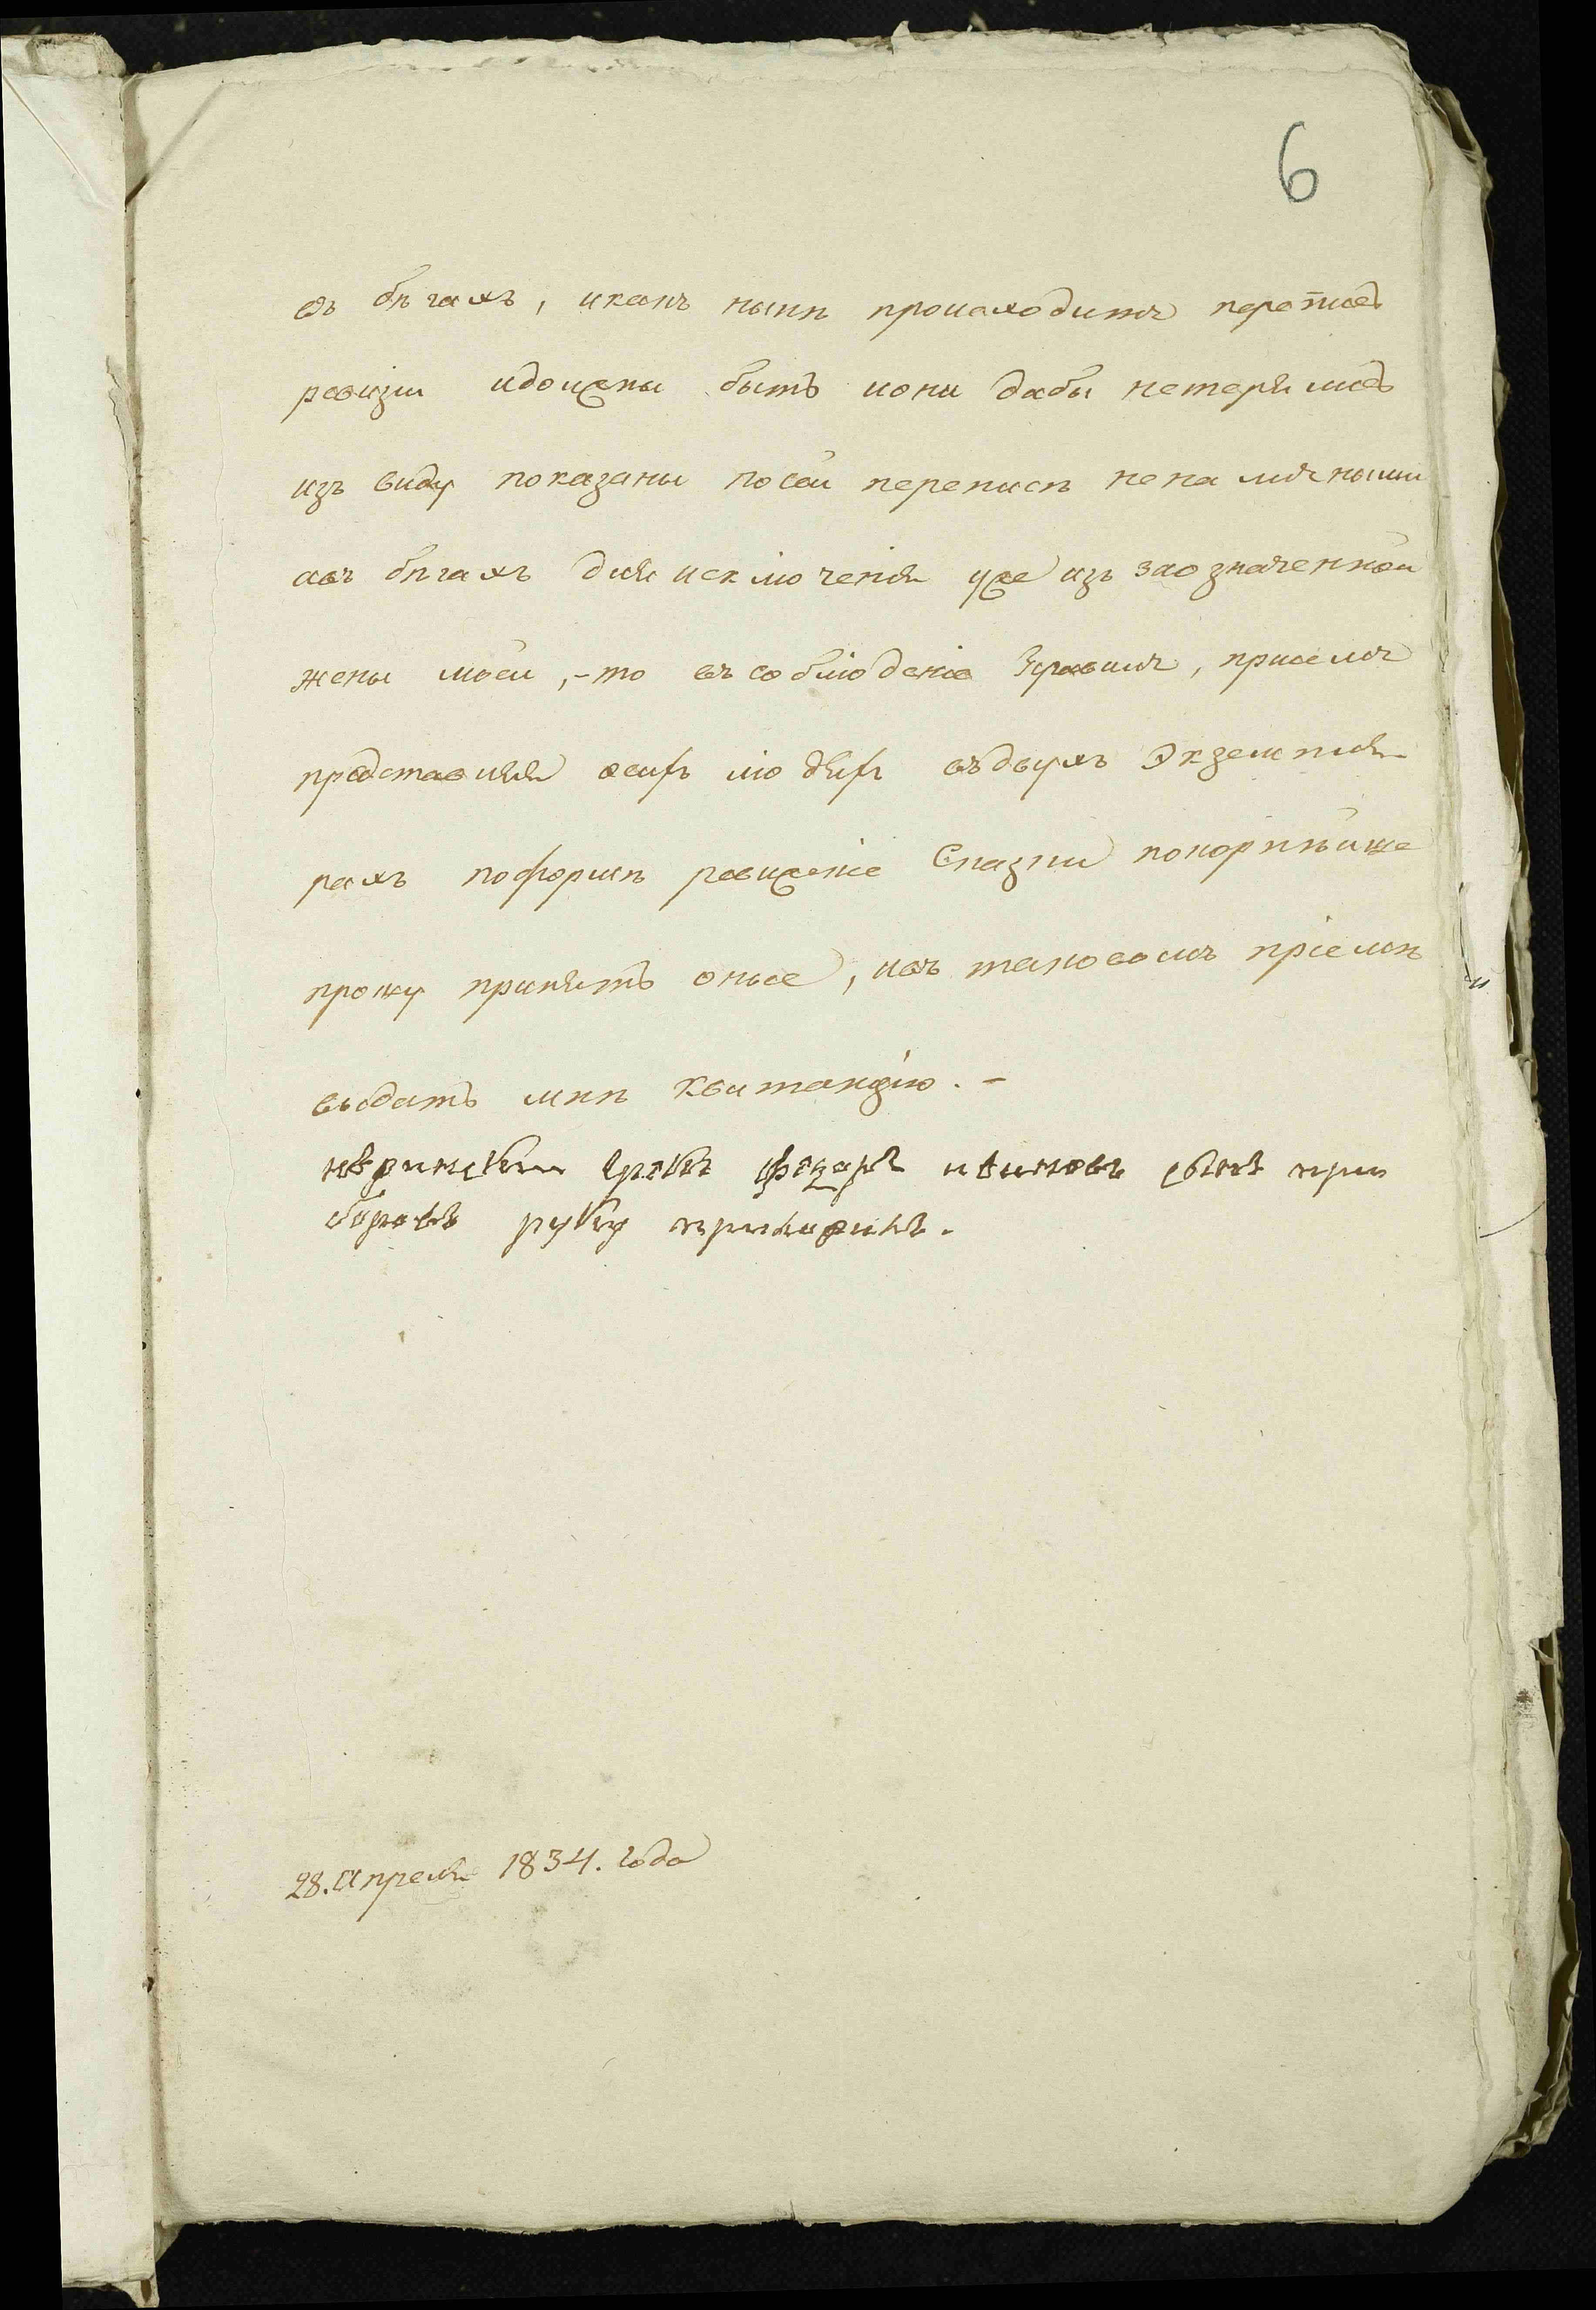 6
въ бѣгахъ, икакъ нынѣ происходитъ перепись
ревизіи идолжны быть иони дабы нетерялись
изъ виду показаны посей переписѣ неналичными
авъ бѣгахъ для исключенія уже изъ заозначенной
жены моей,- то въ соблюденіе правилъ, присемъ
представляя осихъ людяхъ въдвухъ Экземпля
рахъ поформѣ ревижскіе Сказки покорнѣйше
прошу принять оные, ивъ таковомъ пріемѣ
выдать мнѣ Квитанцію.-
грекъ ивановъ сынъ
руку приложилъ.
28. Апреля 1834. года